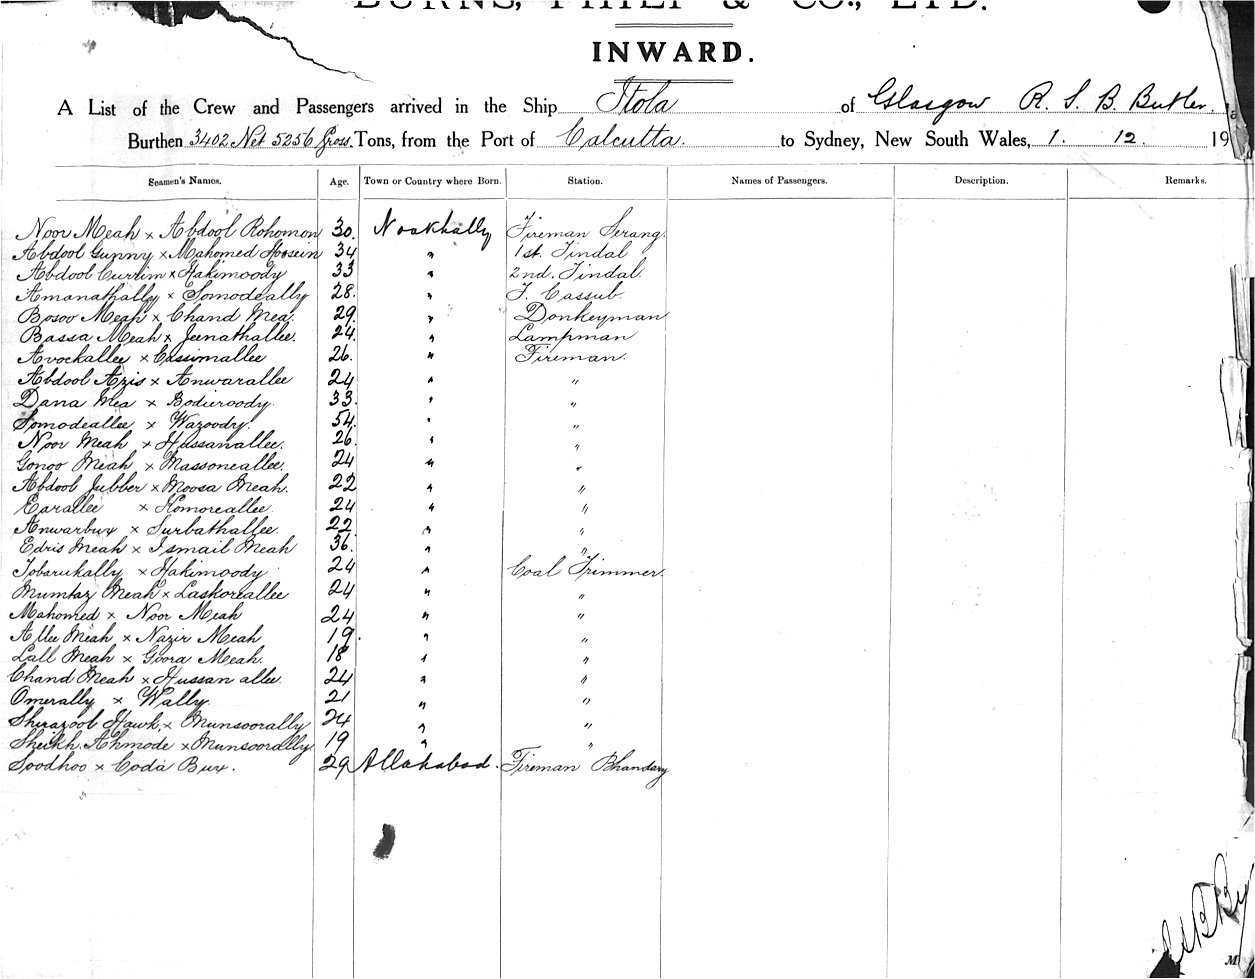 BURNS, PHILP & CO., LTD.
INWARD.
A List of the Crew and Passengers arrived in the Ship Itola of Glasgow R. S. B. Butler.
Burthen 3402 Net 5256 Gross. Tons, from the Port of Calcutta. to Sydney, New South Wales, 1. 12. 19
Seamen's Names. Age. Town or Country where Born. Station. Names of Passengers. Description. Remarks.
Noor Meah x Abdool Rohomon 30. Noakhally Fireman Serang.
Abdool Gunny x Mahomed Hossein 34 " 1st. Tindal
Abdool Currim x Hakimoody 33 " 2nd. Tindal.
Amanathally x Somodeally 28. " F. Cassub.
Bosoo Meah x Chand Mea. 29. " Donkeyman
Bassa Meah x Jeenathallee. 24. " Lampman
Avockallee x Cassimallee 26. " Fireman.
Abdool Azis x Anwarallee 24 " "
Dana Mea x Bodieroody. 33. " "
Somodeallee x Wazoody. 54. " "
Noor Meah x Hussanallee. 26. " "
Gonoo Meah x Massoneallee. 24 " "
Abdool Jubber x Moosa Meah. 22 " "
Earallee x Komoreallee. 24 " "
Anwarbux x Surbathallee. 22 " "
Edris Meah x Ismail Meah 36. " "
Tobarukally x Hakimoody 24 " Coal Trimmer.
Mumtaz Meah x Laskoreallee 24 " "
Mahomed x Noor Meah 24 " "
Allee Meah x Nazir Meah 19. " "
Lall Meah x Goora Meah. 18 " "
Chand Meah x Hussan allee. 24 " "
Omerally x Wally. 21 " "
Shirazool Hawk. x Munsoorally 24 " "
Sheikh Ahmode x Munsoorally 19 " "
Soodhoo x Coda Bux. 29 Allahabad. Fireman Bhandary
M